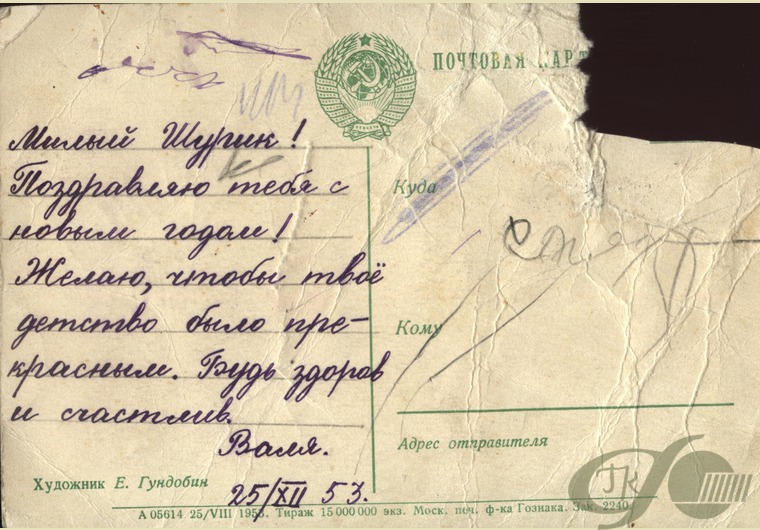 ПОЧТОВАЯ КАРТ
Милый Шурик!
Поздравляю тебя с
новым годом!
Желаю, чтобы твоё
детство было пре-
красным. Будь здоров
и счастлив.
Валя.
25/XII 53.
Куда
Кому
Адрес отправителя
Художник Е. Гундобин
А 05614 25/VIII 1953. Тираж 15 000 000 экз. Моск. печ. ф-ка Гознака. Зак. 2240